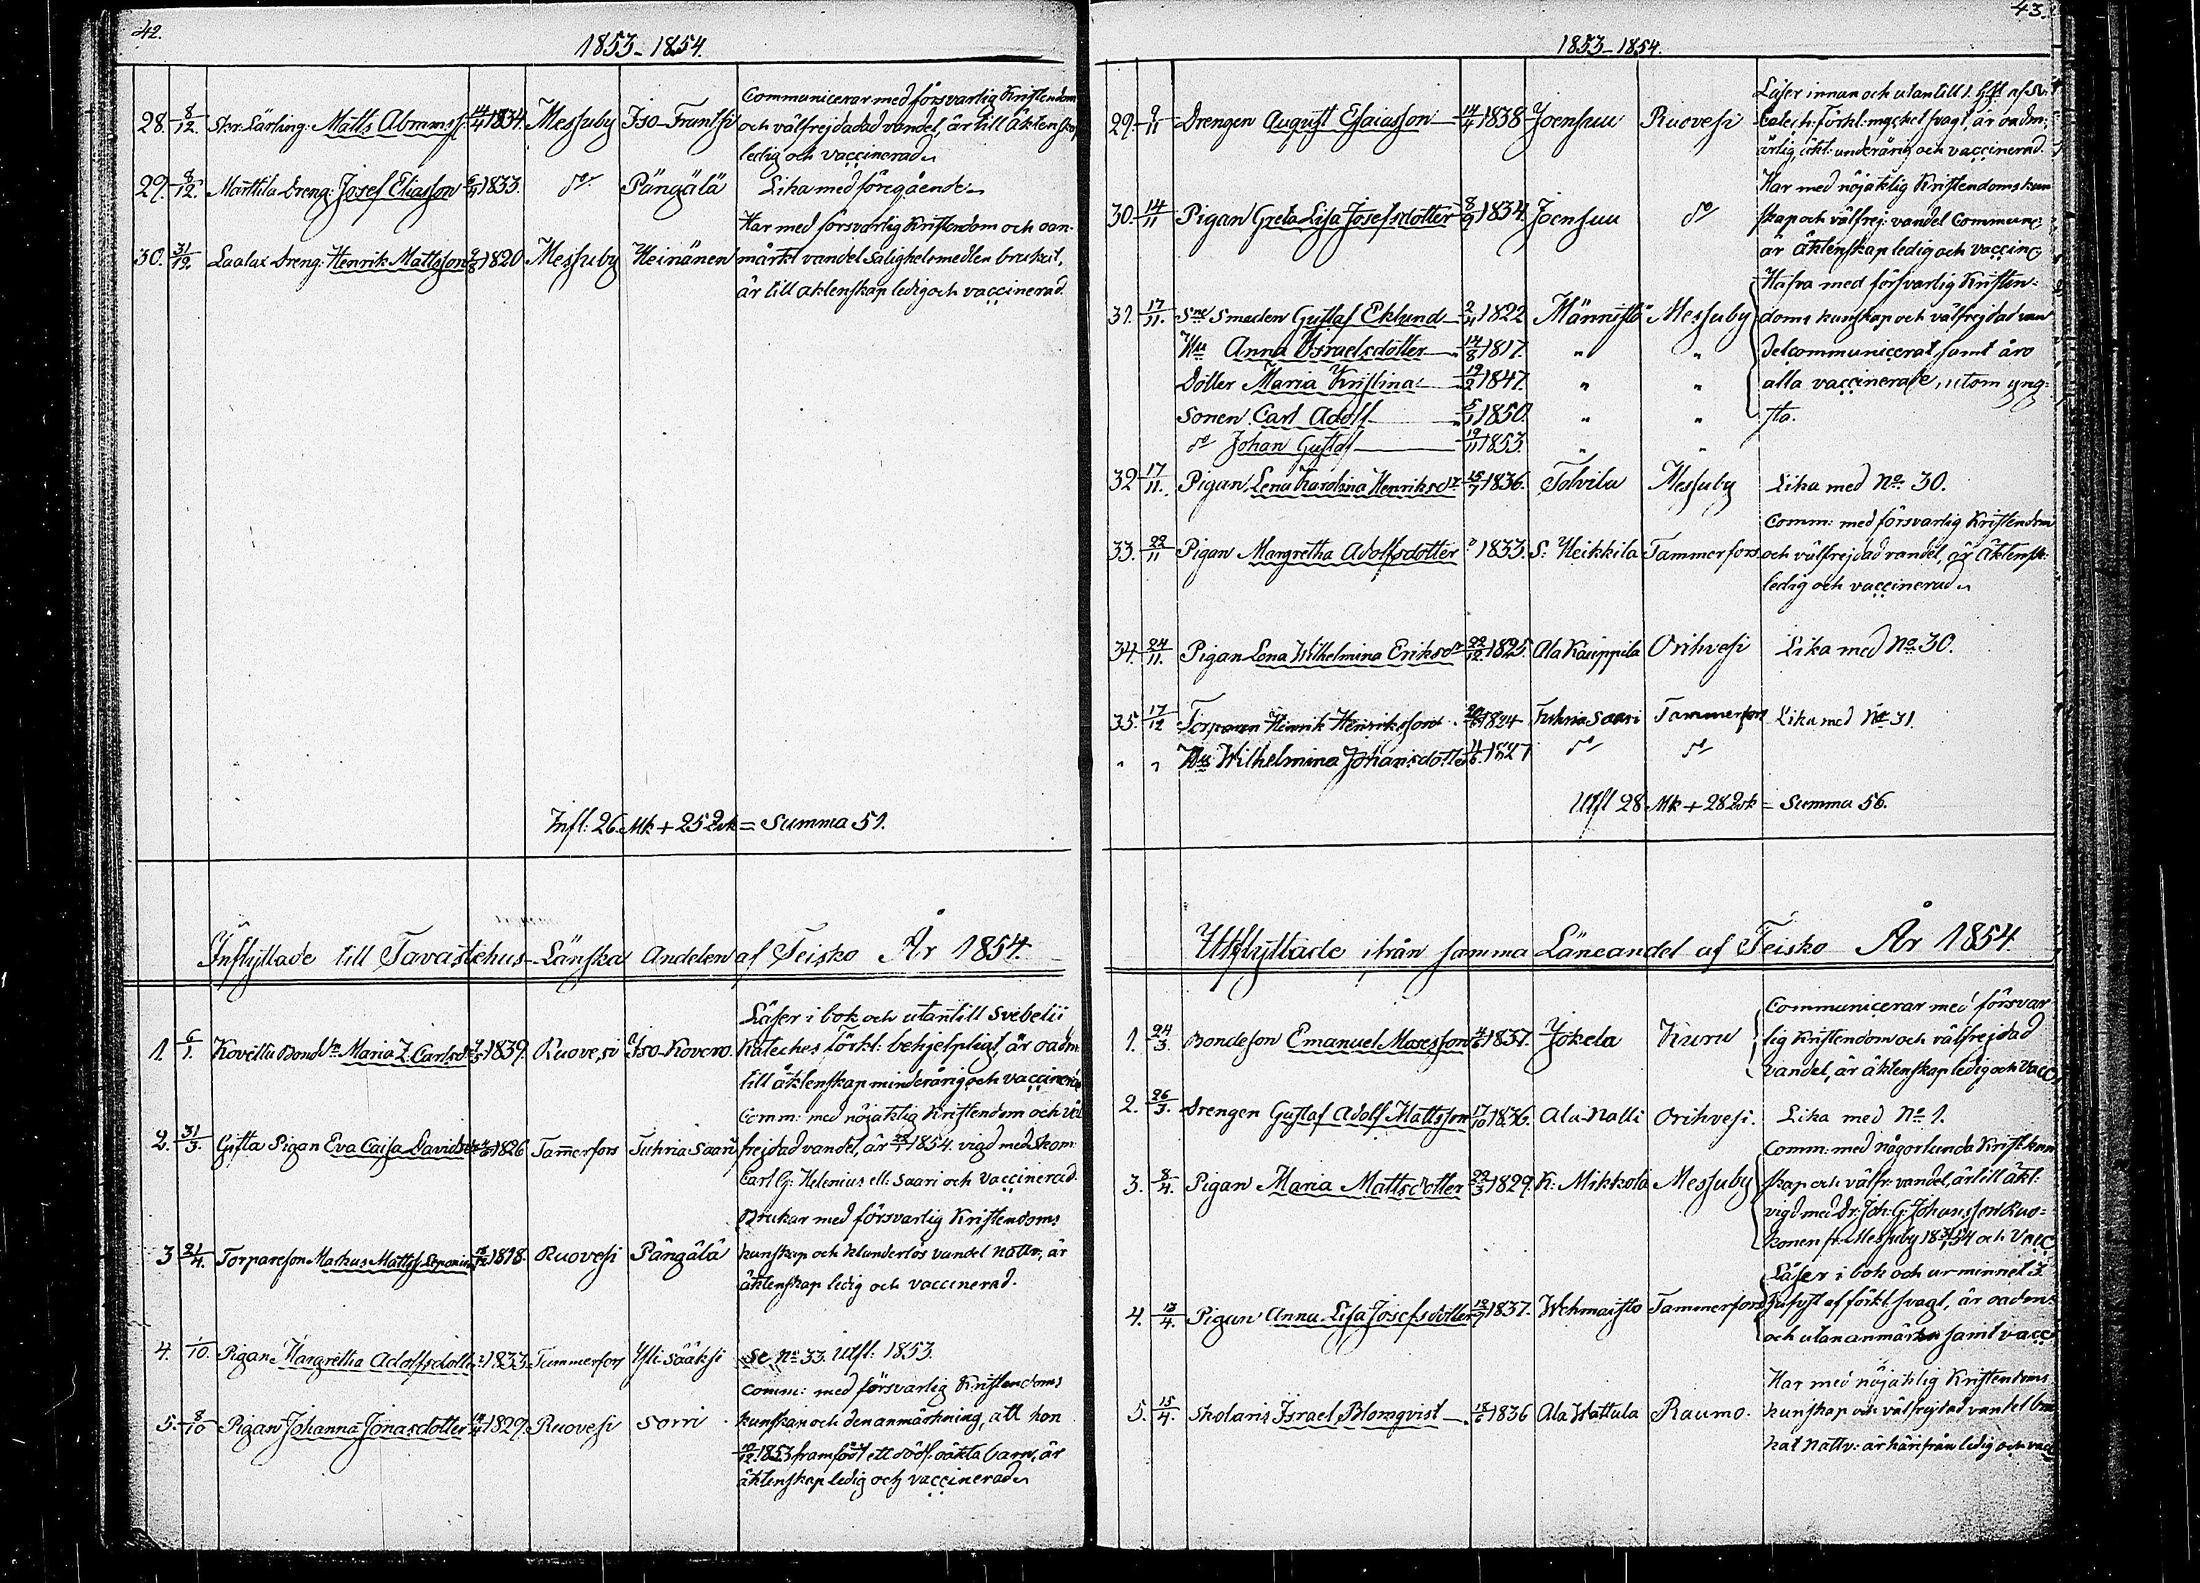 42.
1853-1854.
28. 8/12. Skr: Lärling: Matts Abrmss 14/4 1834. Messuby Iso-Frantsi
Communicerar med försvarlig Kristendom
och välfrejdadad vandel, är till äktenskap
ledig och vaccinerad.
29. 8/12. Marttila Dreng: Josef Eliasson 1833. do Pängälä Lika med föregående.
30. 31/12. Laalax Dreng: Henrik Mattsson 1820 Messuby Heinänen
Har med försvarlig Kristendom och oan-
märkt vandel Salighetsmedlen brukat,
är till äktenskap ledig och vaccinerad.
Infl: 26 Mk + 25 Qvk = Summa 51.
Inflyttade till Tavastehus-Länska Andelen af Teisko År 1854.
1. 6/1. Kovettu Bondd Maria L. Carlsd 1839. Ruovesi Iso-Kovero.
Läser i bok och utantill Svebelii
Kateches Förkl: behjelpligt, är oadm:
till äktenskap minderårig och vaccinerad
2. 31/3. Gifta Pigan Eva Caisa Davidsd 1826 Tammerfors Tuhria Saari
Comm: med nöjaktig Kristendom och väl
frejdad vandel, är 1854. vigd med Skom:
Carl G: Helenius ell: Saari och vaccinerad.
3 21/4. Torpareson Markus Mattss 1818. Ruovesi Pängälä
Brukar med försvarlig Kristendoms
kunskap och klanderlös vandel nattv:, är
äktenskap ledig och vaccinerad.
4. /10. Pigan Margretha Adolfsdotter 1833 Tammerfors Yli-Sääksi se No 33. Utfl: 1853.
5. 8/10 Pigan Johanna Jonasdotter 1829. Ruovesi Sorri
Comm: med försvarlig Kristendoms
kunskap och den anmärkning, att hon
1853 framfödt ett dödf: oäkta barn, är
äktenskap ledig och vaccinerad.
43.
1853-1854.
29. 9/11 Drengen August Esaiasson 14/4 1838 Joensuu Ruovesi
Läser innan och utantill 1. hft af Sv:
Catech: Förkl: mycket svagt, är oadm:
ärlig, äkt: underårig och vaccinerad.
30. 14/11 Pigan Greta Lisa Josefsdotter 8/9 1834. Joensuu do
Har med nöjaktig Kristendomskun
skap och välfrej: vandel Commune
är äktenskap ledig och vaccine
31. 17/11. Sne Smeden Gustaf Eklund 2/11 1822 Männistö Messuby
Hafva med försvarlig Kristen-
doms kunskap och välfrejdad van
Hu Anna Israelsdotter 14/8 1817. " "
del communicerat, samt äro
Dotter Maria Kristina 19/2 1847. " "
alla vaccinerade, utom yng-
Sonen Carl Adolf 5/1 1850. " "
sta.
do Johan Gustaf 19/11 1853. " "
32 17/11. Pigan Lena Karolina Henriksdr 15/7 1836. Tolvila Messuby Lika med No 30.
33. 22/11 Pigan Margretha Adolfsdotter ? 1833. S: Heikkila Tammerfors
Comm: med försvarlig Kristendom
och välfrejdad vandel, är äktensk:
ledig och vaccinerad.
34. 24/11. Pigan Lena Wilhelmina Eriksdr 22/12 1825. Ala Kauppila Orihvesi Lika med No 30.
35. 17/12 Torparen Henrik Henriksson 1824 Tuhria saari Tammerfors Lika med No 31
" " Hu Wilhelmina Johansdotter 1827 do do
Utfl 28 Mk + 28 Qvk = Summa 56.
Utflyttade ifrån samma Läneandel af Teisko År 1854.
1. 24/3. Bondeson Emanuel Mosesson 1837. Jokela Kuru
Communicerar med försvar
lig Kristendom och välfrejdad
vandel, är äktenskap ledig och vacc
2. 26/3. Drengen Gustaf Adolf Mattsson 17/10 1836. Ala-Nalli Orihvesi. Lika med No 1.
3. 8/4. Pigan Maria Mattsdotter 29/3 1829. K: Mikkola Messuby
Comm: med någorlunda Kristkun
skap och välfr: vandel, är till äkt:
vigd med Dr: Joh: G: Johansson Ruo-
konen fr: Messuby 1854 och Vacc
4. 12/4. Pigan Anna Lisa Josefsdotter 12/7 1837. Wehmaisto Tammerfors
Läser i bok och ur minnet 3.
af förkl: svagt, är oadm:
och utan anmärkn samt vacc
5. 15/4. Skolaris Israel Blomqvist 1836 Ala Wattula Raumo.
Har med nöjaktig Kristendoms
kunskap och välfrejdad vandel bru
kat nattv: är härifrån ledig och vacc